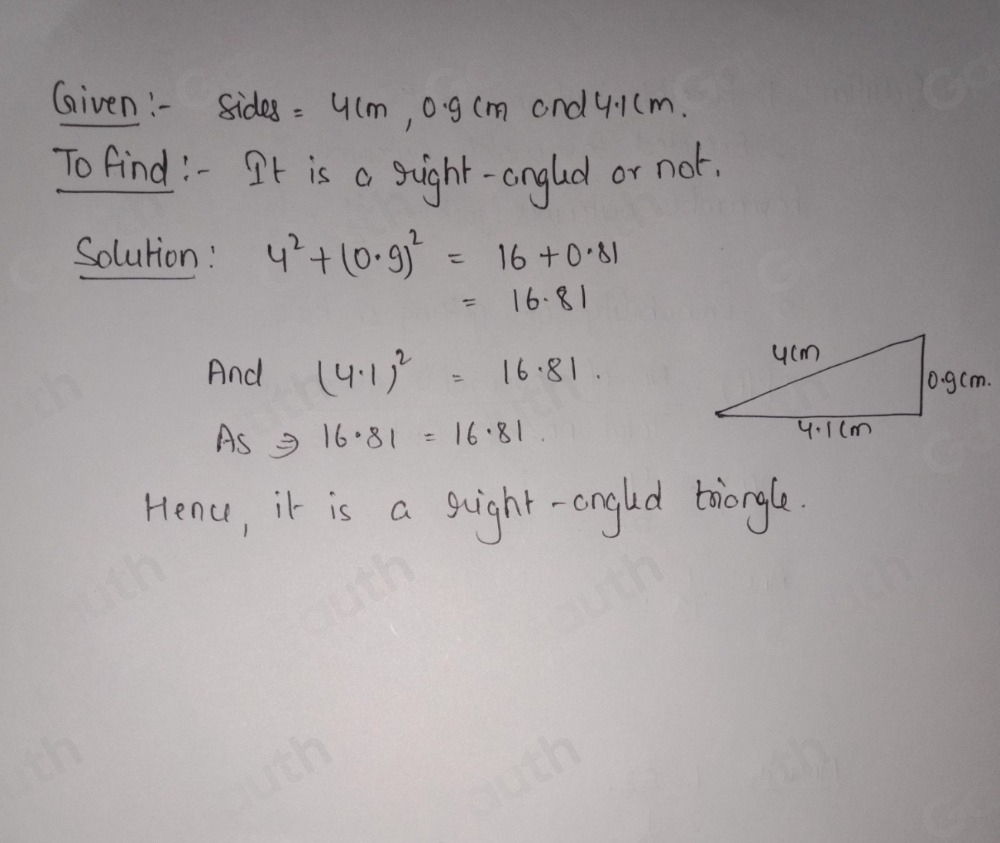 Given :- Sides = 4cm, 0.9 cm and 4.1cm.
To find :- It is a right-angled or not.
Solution: 4² + (0.9)² = 16 + 0.81
= 16.81
And (4.1)² = 16.81.
As ⇒ 16.81 = 16.81.
Hence, it is a right-angled triangle.
4cm
0.9cm.
4.1cm